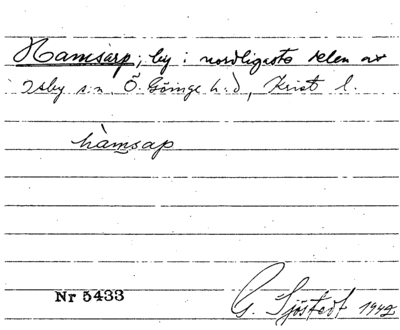 Hamsarp, by i nordligaste delen av
Osby s:n Ö. Göinge h:d, Krist l.
hàmsap
Nr 5433
G. Sjöstedt 1942